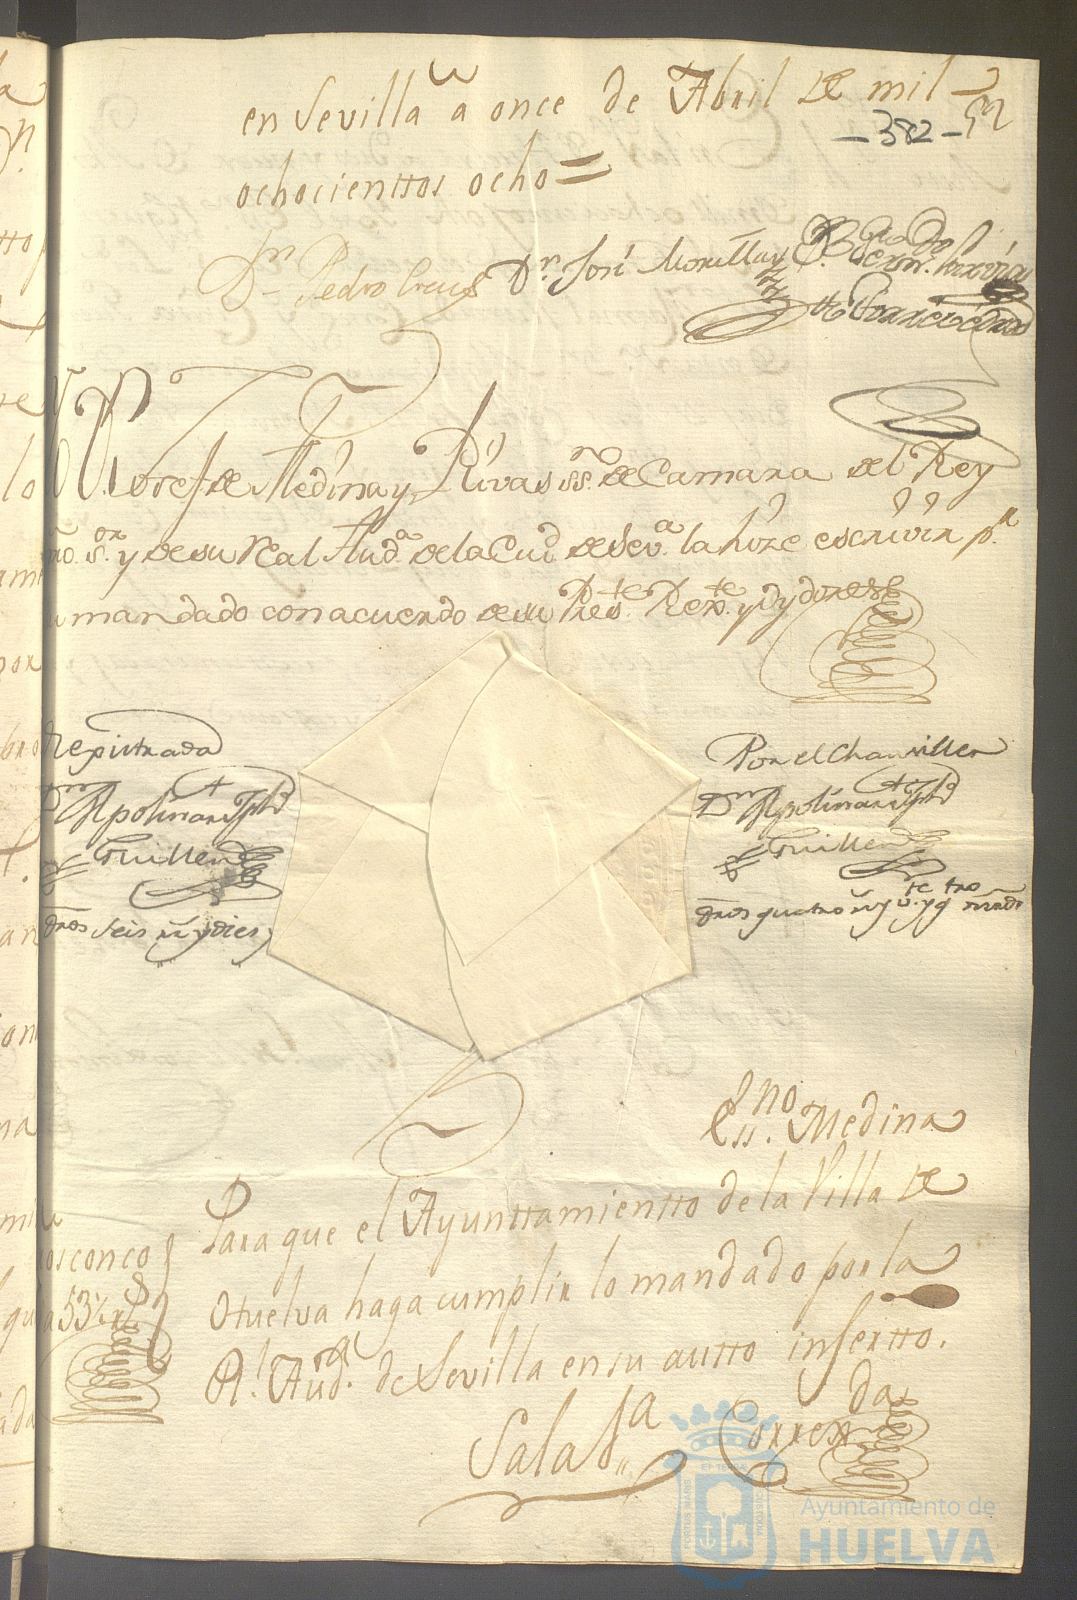 en Sevilla a once de Abril de mil
ochocienttos ocho =
-382-
Dn. Pedro Dn. José Morilla y
Yo Dn. Josef de Medina y Rivas ssno. de Camara del Rey
nro. sor. y de su Real Auda. de la Ciud. de Seva. la hize escrivir pr.
su mandado con acuerdo de su Reste. Rexte. y Oydores
Rexistrada
Dn. Apolinar
Guillen
dros seis rr. y dies
Por el Chanciller
Dn. Apolinar
Guillen
dros quatro
Essno. Medina
Para que el Ayunttamientto de la Villa de
Huelva haga cumplir lo mandado por la
Rl. Auda. de Sevilla en su autto insertto.
Sala Correxda.
Ayuntamiento de
HUELVA